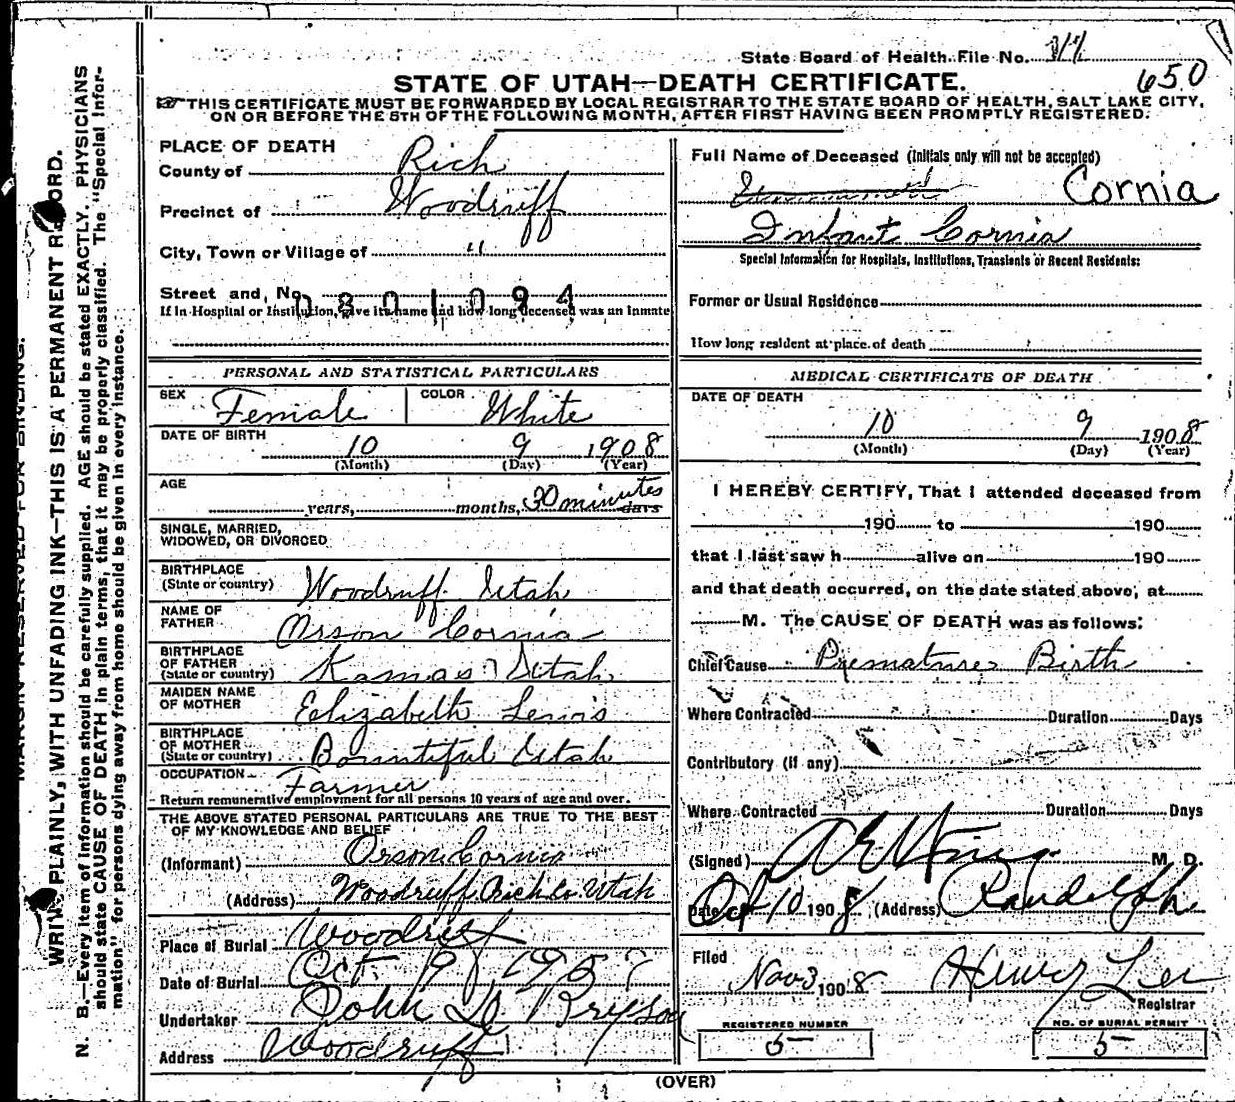 State Board of Health File No.
650
STATE OF UTAH—DEATH CERTIFICATE.
THIS CERTIFICATE MUST BE FORWARDED BY LOCAL REGISTRAR TO THE STATE BOARD OF HEALTH, SALT LAKE CITY,
ON OR BEFORE THE 5TH OF THE FOLLOWING MONTH, AFTER FIRST HAVING BEEN PROMPTLY REGISTERED.
WRITE PLAINLY, WITH UNFADING INK—THIS IS A PERMANENT RECORD.
N. B.—Every item of information should be carefully supplied. AGE should be stated EXACTLY. PHYSICIANS
should state CAUSE OF DEATH in plain terms, that it may be properly classified. The "Special Infor-
mation" for persons dying away from home should be given in every instance.
PLACE OF DEATH
County of Rich
Precinct of Woodruff
City, Town or Village of "
Street and No.
If in Hospital or Institution, give its name and how long deceased was an inmate
Full Name of Deceased (Initials only will not be accepted)
Cornia
Infant Cornia
Special Information for Hospitals, Institutions, Transients or Recent Residents:
Former or Usual Residence
How long resident at place of death
PERSONAL AND STATISTICAL PARTICULARS
SEX Female COLOR White
DATE OF BIRTH
10 9 1908
(Month) (Day) (Year)
AGE
years, months, 30 minutes days
SINGLE, MARRIED,
WIDOWED, OR DIVORCED
BIRTHPLACE
(State or country) Woodruff Utah
NAME OF
FATHER Orson Cornia
BIRTHPLACE
OF FATHER
(State or country) Kamas Utah
MAIDEN NAME
OF MOTHER Elizabeth Lewis
BIRTHPLACE
OF MOTHER
(State or country) Bountiful Utah
OCCUPATION Farmer
Return remunerative employment for all persons 10 years of age and over.
THE ABOVE STATED PERSONAL PARTICULARS ARE TRUE TO THE BEST
OF MY KNOWLEDGE AND BELIEF
(Informant) Orson Cornia
(Address) Woodruff Rich Co. Utah
Place of Burial Woodruff
Date of Burial Oct. 9
Undertaker John D. Bryson
Address Woodruff
MEDICAL CERTIFICATE OF DEATH
DATE OF DEATH
10 9 1908
(Month) (Day) (Year)
I HEREBY CERTIFY, That I attended deceased from
190 to 190
that I last saw h alive on 190
and that death occurred, on the date stated above, at
M. The CAUSE OF DEATH was as follows:
Chief Cause Premature Birth
Where Contracted Duration Days
Contributory (if any)
Where Contracted Duration Days
(Signed) M. D.
Date Oct 10 1908 (Address) Randolph
Filed
Nov 3 1908 Henry Lee
Registrar
REGISTERED NUMBER
5
NO. OF BURIAL PERMIT
5
(OVER)